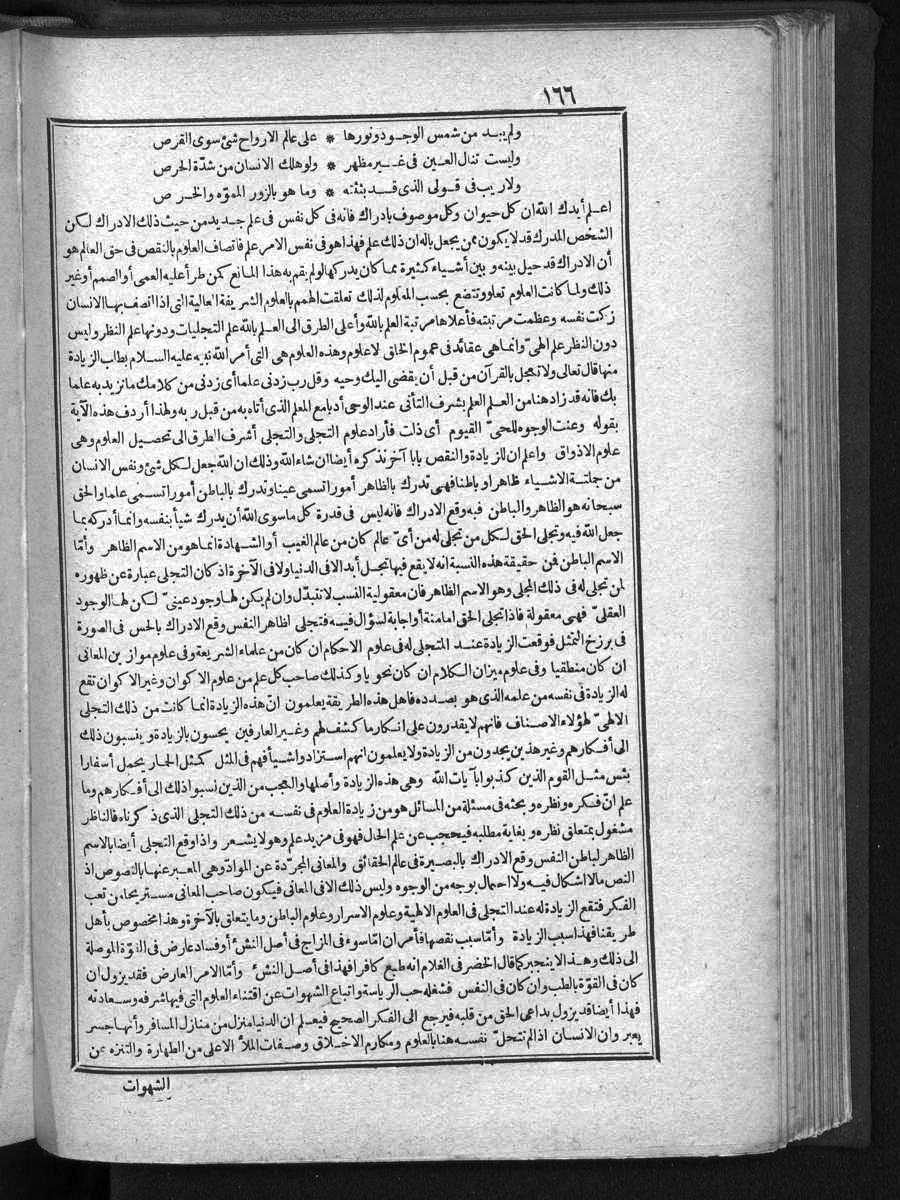 ١٦٦
ولم يبد من شمس الوجود ونورها * على عالم الارواح شئ سوى القرص
وليست تنال العين فى غير مظهر * ولو هلك الانسان من شدّة الحرص
ولا ريب فى قولى الذى قد بثثته * وما هو بالزور المموّه والخرص
اعلم أيدك الله ان كل حيوان وكل موصوف بادراك فانه فى كل نفس فى علم جديد من حيث ذلك الادراك لكن
الشخص المدرك قد لا يكون ممن يجعل باله ان ذلك علم فهذا هو فى نفس الامر علم فاتصاف العلوم بالنقص فى حق العالم هو
أن الادراك قد حيل بينه وبين أشياء كثيرة مما كان يدركها لو لم يقم به هذا المانع كمن طرأ عليه العمى أو الصمم أو غير
ذلك ولما كانت العلوم تعلو وتتضع بحسب المعلوم لذلك تعلقت الهمم بالعلوم الشريفة العالية التى اذا اتصف بها الانسان
زكت نفسه وعظمت مرتبته فأعلاها مرتبة العلم بالله وأعلى الطرق الى العلم بالله علم التجليات ودونها علم النظر وليس
دون النظر علم الهىّ وانما هى عقائد فى عموم الخلق لا علوم وهذه العلوم هى التى أمر الله نبيه عليه السلام بطلب الزيادة
منها قال تعالى ولا تعجل بالقرآن من قبل أن يقضى اليك وحيه وقل رب زدنى علما أى زدنى من كلامك ما نزيد به علما
بك فانه قد زاد هنا من العلم العلم بشرف التأنى عند الوحى أدبا مع المعلم الذى أتاه به من قبل ربه ولهذا أردف هذه الآية
بقوله وعنت الوجوه للحىّ القيوم أى ذلت فأراد علوم التجلى والتجلى أشرف الطرق الى تحصيل العلوم وهى
علوم الاذواق واعلم ان للزيادة والنقص بابا آخر نذكره أيضا ان شاء الله وذلك ان الله جعل لكل شئ ونفس الانسان
من جملة الاشياء ظاهرا وباطنا فهى تدرك بالظاهر أمورا تسمى عينا وتدرك بالباطن أمورا تسمى علما والحق
سبحانه هو الظاهر والباطن فبه وقع الادراك فانه ليس فى قدرة كل ما سوى الله أن يدرك شيأ بنفسه وانما أدركه بما
جعل الله فيه وتجلى الحق لكل من تجلى له من أىّ عالم كان من عالم الغيب أو الشهادة انما هو من الاسم الظاهر وأمّا
الاسم الباطن فمن حقيقة هذه النسبة انه لا يقع فيها تجل أبدا لا فى الدنيا ولا فى الآخرة اذ كان التجلى عبارة عن ظهوره
لمن تجلى له فى ذلك المجلى وهو الاسم الظاهر فان معقولية النسب لا تتبدّل وان لم يكن لها وجود عينىّ لكن لها الوجود
العقلىّ فهى معقولة فاذا تجلى الحق اما منة أو اجابة لسؤال فيه فتجلى لظاهر النفس وقع الادراك بالحس فى الصورة
فى برزخ التمثل فوقعت الزيادة عند المتجلى له فى علوم الاحكام ان كان من علماء الشريعة وفى علوم موازين المعانى
ان كان منطقيا وفى علوم ميزان الكلام ان كان نحويا وكذلك صاحب كل علم من علوم الاكوان وغير الاكوان تقع
له الزيادة فى نفسه من علمه الذى هو بصدده فاهل هذه الطريقة يعلمون ان هذه الزيادة انما كانت من ذلك التجلى
الالهىّ لهؤلاء الاصناف فانهم لا يقدرون على انكار ما كشف لهم وغير العارفين يحسون بالزيادة وينسبون ذلك
الى أفكارهم وغير هذين يجدون من الزيادة ولا يعلمون انهم استزادوا شيأ فهم فى المثل كمثل الحمار يحمل أسفارا
بئس مثل القوم الذين كذبوا بآيات الله وهى هذه الزيادة وأصلها والعجب من الذين نسبوا ذلك الى أفكارهم وما
علم انّ فكره ونظره وبحثه فى مسئلة من المسائل هو من زيادة العلوم فى نفسه من ذلك التجلى الذى ذكرناه فالناظر
مشغول بمتعلق نظره وبغاية مطلبه فيحجب عن علم الحال فهو فى مزيد علم وهو لا يشعر واذا وقع التجلى أيضا بالاسم
الظاهر لباطن النفس وقع الادراك بالبصيرة فى عالم الحقائق والمعانى المجرّدة عن الموادّ وهى المعبر عنها بالنصوص اذ
النص ما لا اشكال فيه ولا احتمال بوجه من الوجوه وليس ذلك الا فى المعانى فيكون صاحب المعانى مستريحا من تعب
الفكر فتقع الزيادة له عند التجلى فى العلوم الالهية وعلوم الاسرار وعلوم الباطن وما يتعلق بالآخرة وهذا مخصوص بأهل
طريقنا فهذا سبب الزيادة وأمّا سبب نقصها فأمران امّا سوء فى المزاج فى أصل النشئ أو فساد عارض فى القوّة الموصلة
الى ذلك وهذا لا ينجبر كما قال الخضر فى الغلام انه طبع كافرا فهذا فى أصل النشئ وأمّا الامر العارض فقد يزول ان
كان فى القوّة بالطب وان كان فى النفس فشغله حب الرياسة واتباع الشهوات عن اقتناء العلوم التى فيها شرفه وسعادته
فهذا أيضا قد يزول بداعى الحق من قلبه فيرجع الى الفكر الصحيح فيعلم ان الدنيا منزل من منازل المسافر وأنها جسر
يعبر وان الانسان اذا لم تتحلّ نفسه هنا بالعلوم ومكارم الاخلاق وصفات الملأ الاعلى من الطهارة والتنزه عن
الشهوات